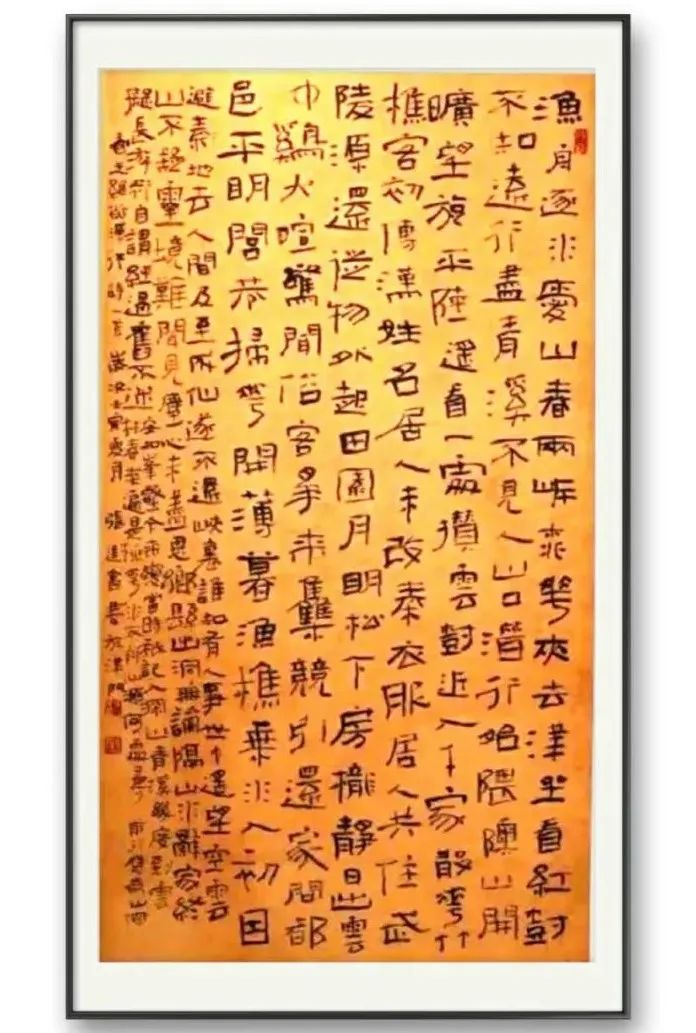 漁舟逐水愛山春兩岸桃花夾去津坐看紅樹
不知遠行盡青溪不見人山口潛行始隈隩山開
曠望旋平陸遙看一處攢雲樹近入千家散花竹
樵客初傳漢姓名居人未改秦衣服居人共住武
陵源還從物外起田園月明松下房櫳靜日出雲
中鷄犬喧驚聞俗客爭來集競引還家問都
邑平明閭巷掃花開薄暮漁樵乘水入初因
避秦地去人間及至成仙遂不還峽裏誰知有人事世中遙望空雲
山不疑靈境難聞見塵心未盡思鄉縣出洞無論隔山水辭家終
擬長游衍自謂經過舊不迷
安知峯壑今來變當時秖記入深山青溪幾度至雲
林春來遍是桃花水不辨仙源何處尋
行詩一首 歲次壬寅 月 張進書於津門